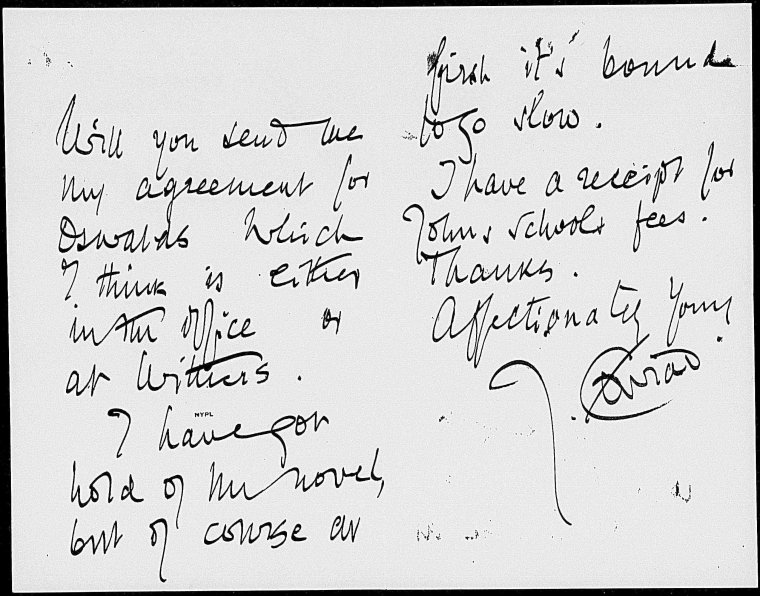 Will you send me
my agreement for
Oswalds which
I think is either
in the office or
at Withers.
I have got
hold of the novel,
but of course at
NYPL
first it's bound
to go slow.
I have a receipt for
John's schools fees.
Thanks.
Affectionately Yours
J. Conrad.